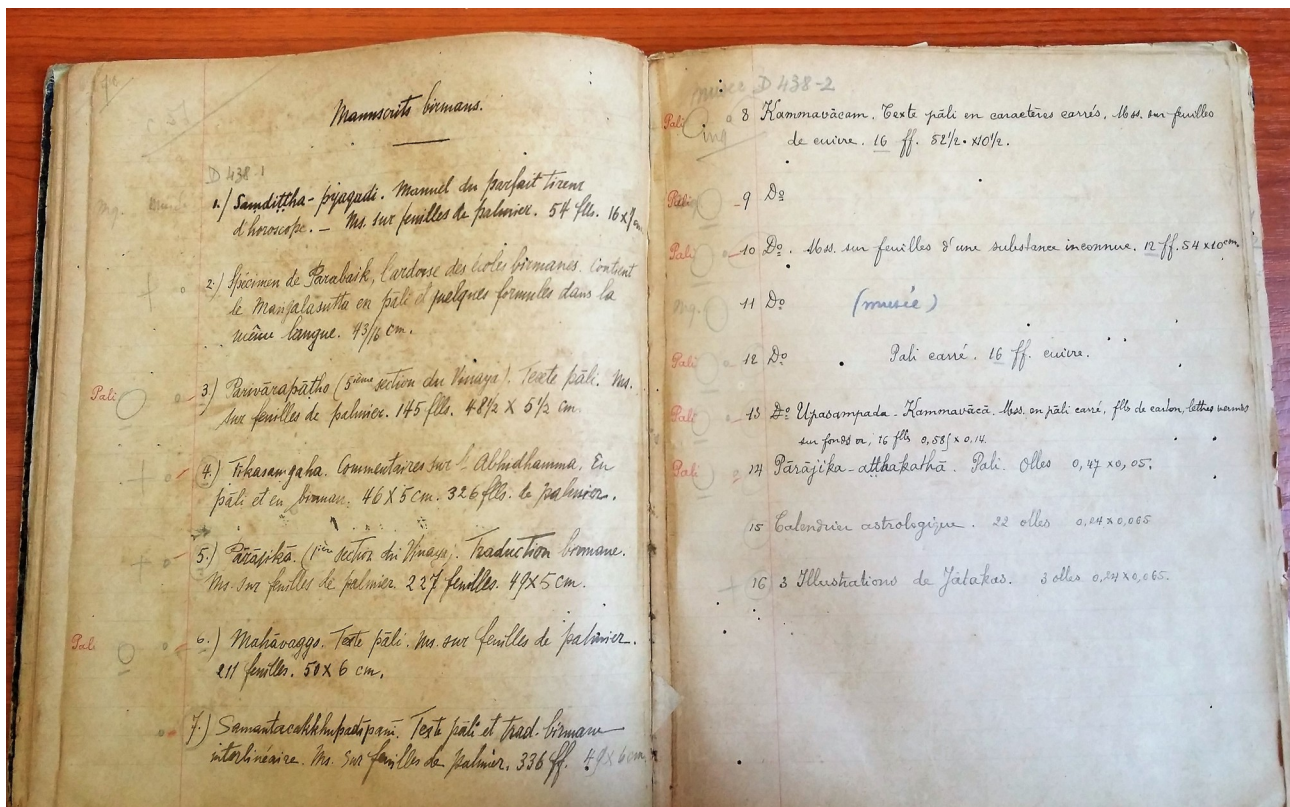 Manuscrits birmans.
D 438-1
1.) Samdiṭṭha-pyagadi. Manuel du parfait tireur
d'horoscope. — Ms. sur feuilles de palmier. 54 flls. 16 x
2.) Spécimen de Parabaik, l'ardoise des écoles birmanes. Contient
le Mangalasutta en pāli et quelques formules dans la
même langue. 43/16 cm.
Pali 3.) Parivārapātho (5ième section du Vinaya). Texte pāli. Ms.
sur feuilles de palmier. 145 flls. 48½ X 5½ cm.
4.) Tikasamgaha. Commentaires sur l'Abhidhamma. En
pāli et en birman. 46 X 5 cm. 326 flls. de palmier.
5.) Pārājikā. (1ière section du Vinaya). Traduction birmane.
Ms. sur feuilles de palmier. 227 feuilles. 49 X 5 cm.
Pali 6.) Mahāvaggo. Texte pāli. Ms. sur feuilles de palmier.
211 feuilles. 50 X 6 cm.
7.) Samantacakkhupadīpanī. Texte pāli et trad. birmane
interlinéaire. Ms. sur feuilles de palmier. 336 ff. 49 X 6 cm.
musée D 438-2
Pali 8 Kammavācam. Texte pāli en caractères carrés. Mss. sur feuilles
de cuivre. 16 ff. 52½ x 10½.
9 Dº
Pali 10 Dº. Mss. sur feuilles d'une substance inconnue. 12 ff. 54 x 10 cm.
mg. 11 Dº (musée)
Pali 12 Dº Pali carré. 16 ff. cuivre.
Pali 13 Dº Upasampada-Kammavācā. Mss. en pāli carré, flls de carton, lettres vernies
sur fonds or, 16 flls 0,58 x 0.14.
Pali 14 Pārājika-aṭṭhakathā. Pali. Olles 0,47 x 0,05.
15 Calendrier astrologique. 22 olles 0,24 x 0,065
16 3 Illustrations de Jâtakas. 3 olles 0,24 x 0,065.